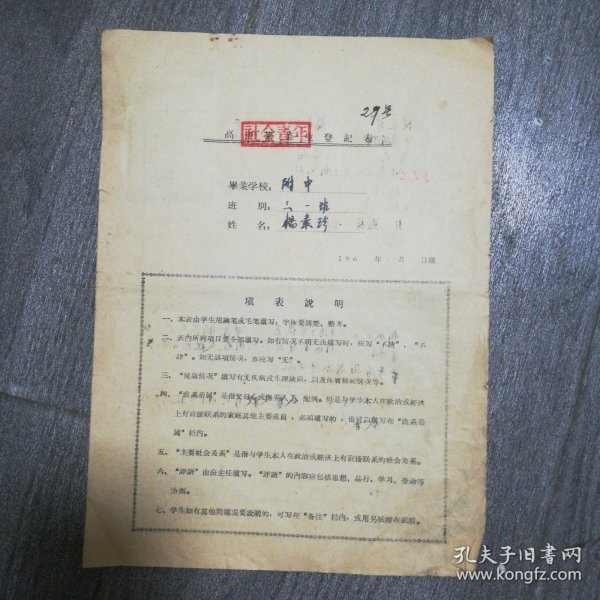 29号
高 登記表
社会青年
畢業学校：附中
班 別：三一班
姓 名：楊素珍
196 年 月 日填
填表説明
一、本表由学生用鋼笔或毛笔填写，字体要清楚、整齐。
二、表内所列項目要全部填写。如有情况不明无法填写时，应写“不詳”、“不
詳”。如无該項情况，亦应写“无”。
三、“健康情况”填写有无疾病或生理缺陷，以及体質强弱情况等。
四、“直系亲属”是指 配偶。但是与学生本人在政治或經济
上有直接联系的家庭其他主要成員，必須填写的，也可以填写在“直系亲
属”栏内。
五、“主要社会关系”是指与学生本人在政治或經济上有直接联系的社会关系。
六、“評語”由班主任填写。“評語”的内容应包括思想、品行、学习、劳动等
方面。
七、学生如有其他問題需要說明的，可写在“备注”栏内，或用另紙附在表后。
孔夫子旧書网
www.kongfz.com